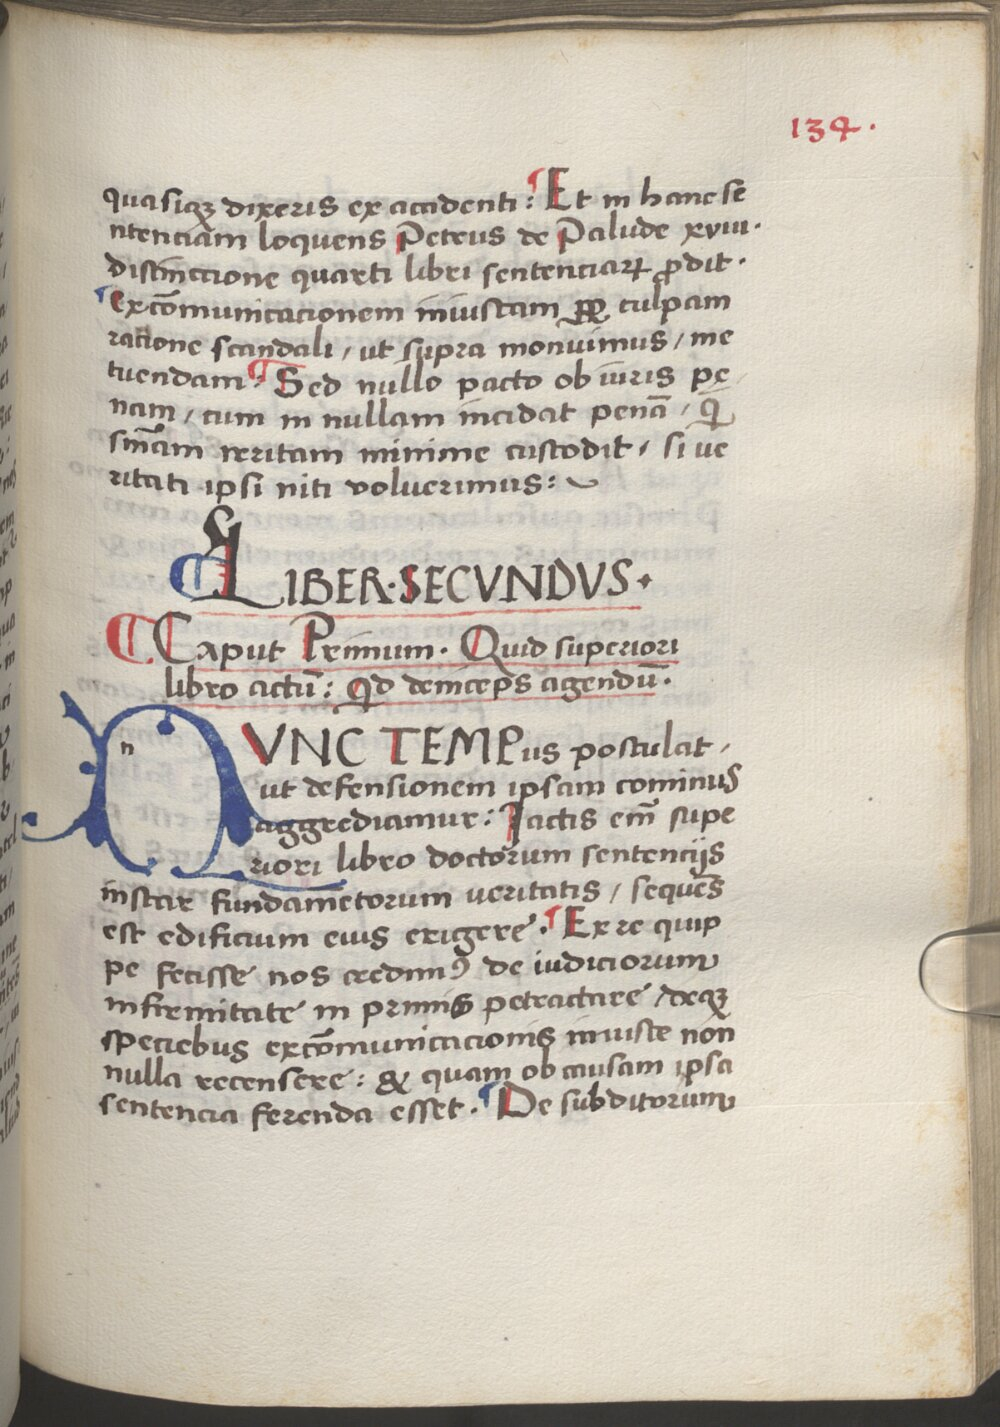 134.
quasiqꝫ dixeris ex accidenti: Et in hanc se
ntenciam loquens Petrus de Palude xviii.
distinccione quarti libri sentenciaꝝ ꝓdit.
excōmunicacionem iniustam culpam
ratione scandali / ut supra monuimus / me
tuendam. Sed nullo pacto ob iuris pę
nam / cum in nullam incidat penā /
irritam minime custodit / si ve
ritati ipsi niti voluerimus:
LIBER·SECVNDVS·
Caput Primum. Quid superiori
libro actū: Qd deinceps agendū.
n
VNC TEMPus postulat /
ut defensionem ipsam cominus
aggrediamur: Iactis em̄ supe
riori libro doctorum sentencijs
instar fundamētorum veritatis / sequēs
est edificium eius erigere. Ex re quip
pe fecisse nos credimꝰ de iudiciorum
infirmitate in primis petractare / deqꝫ
speciebus excōmunicacionis iniuste non
nulla recensere: & quam ob causam ipsa
sentencia ferenda esset. De subditorum